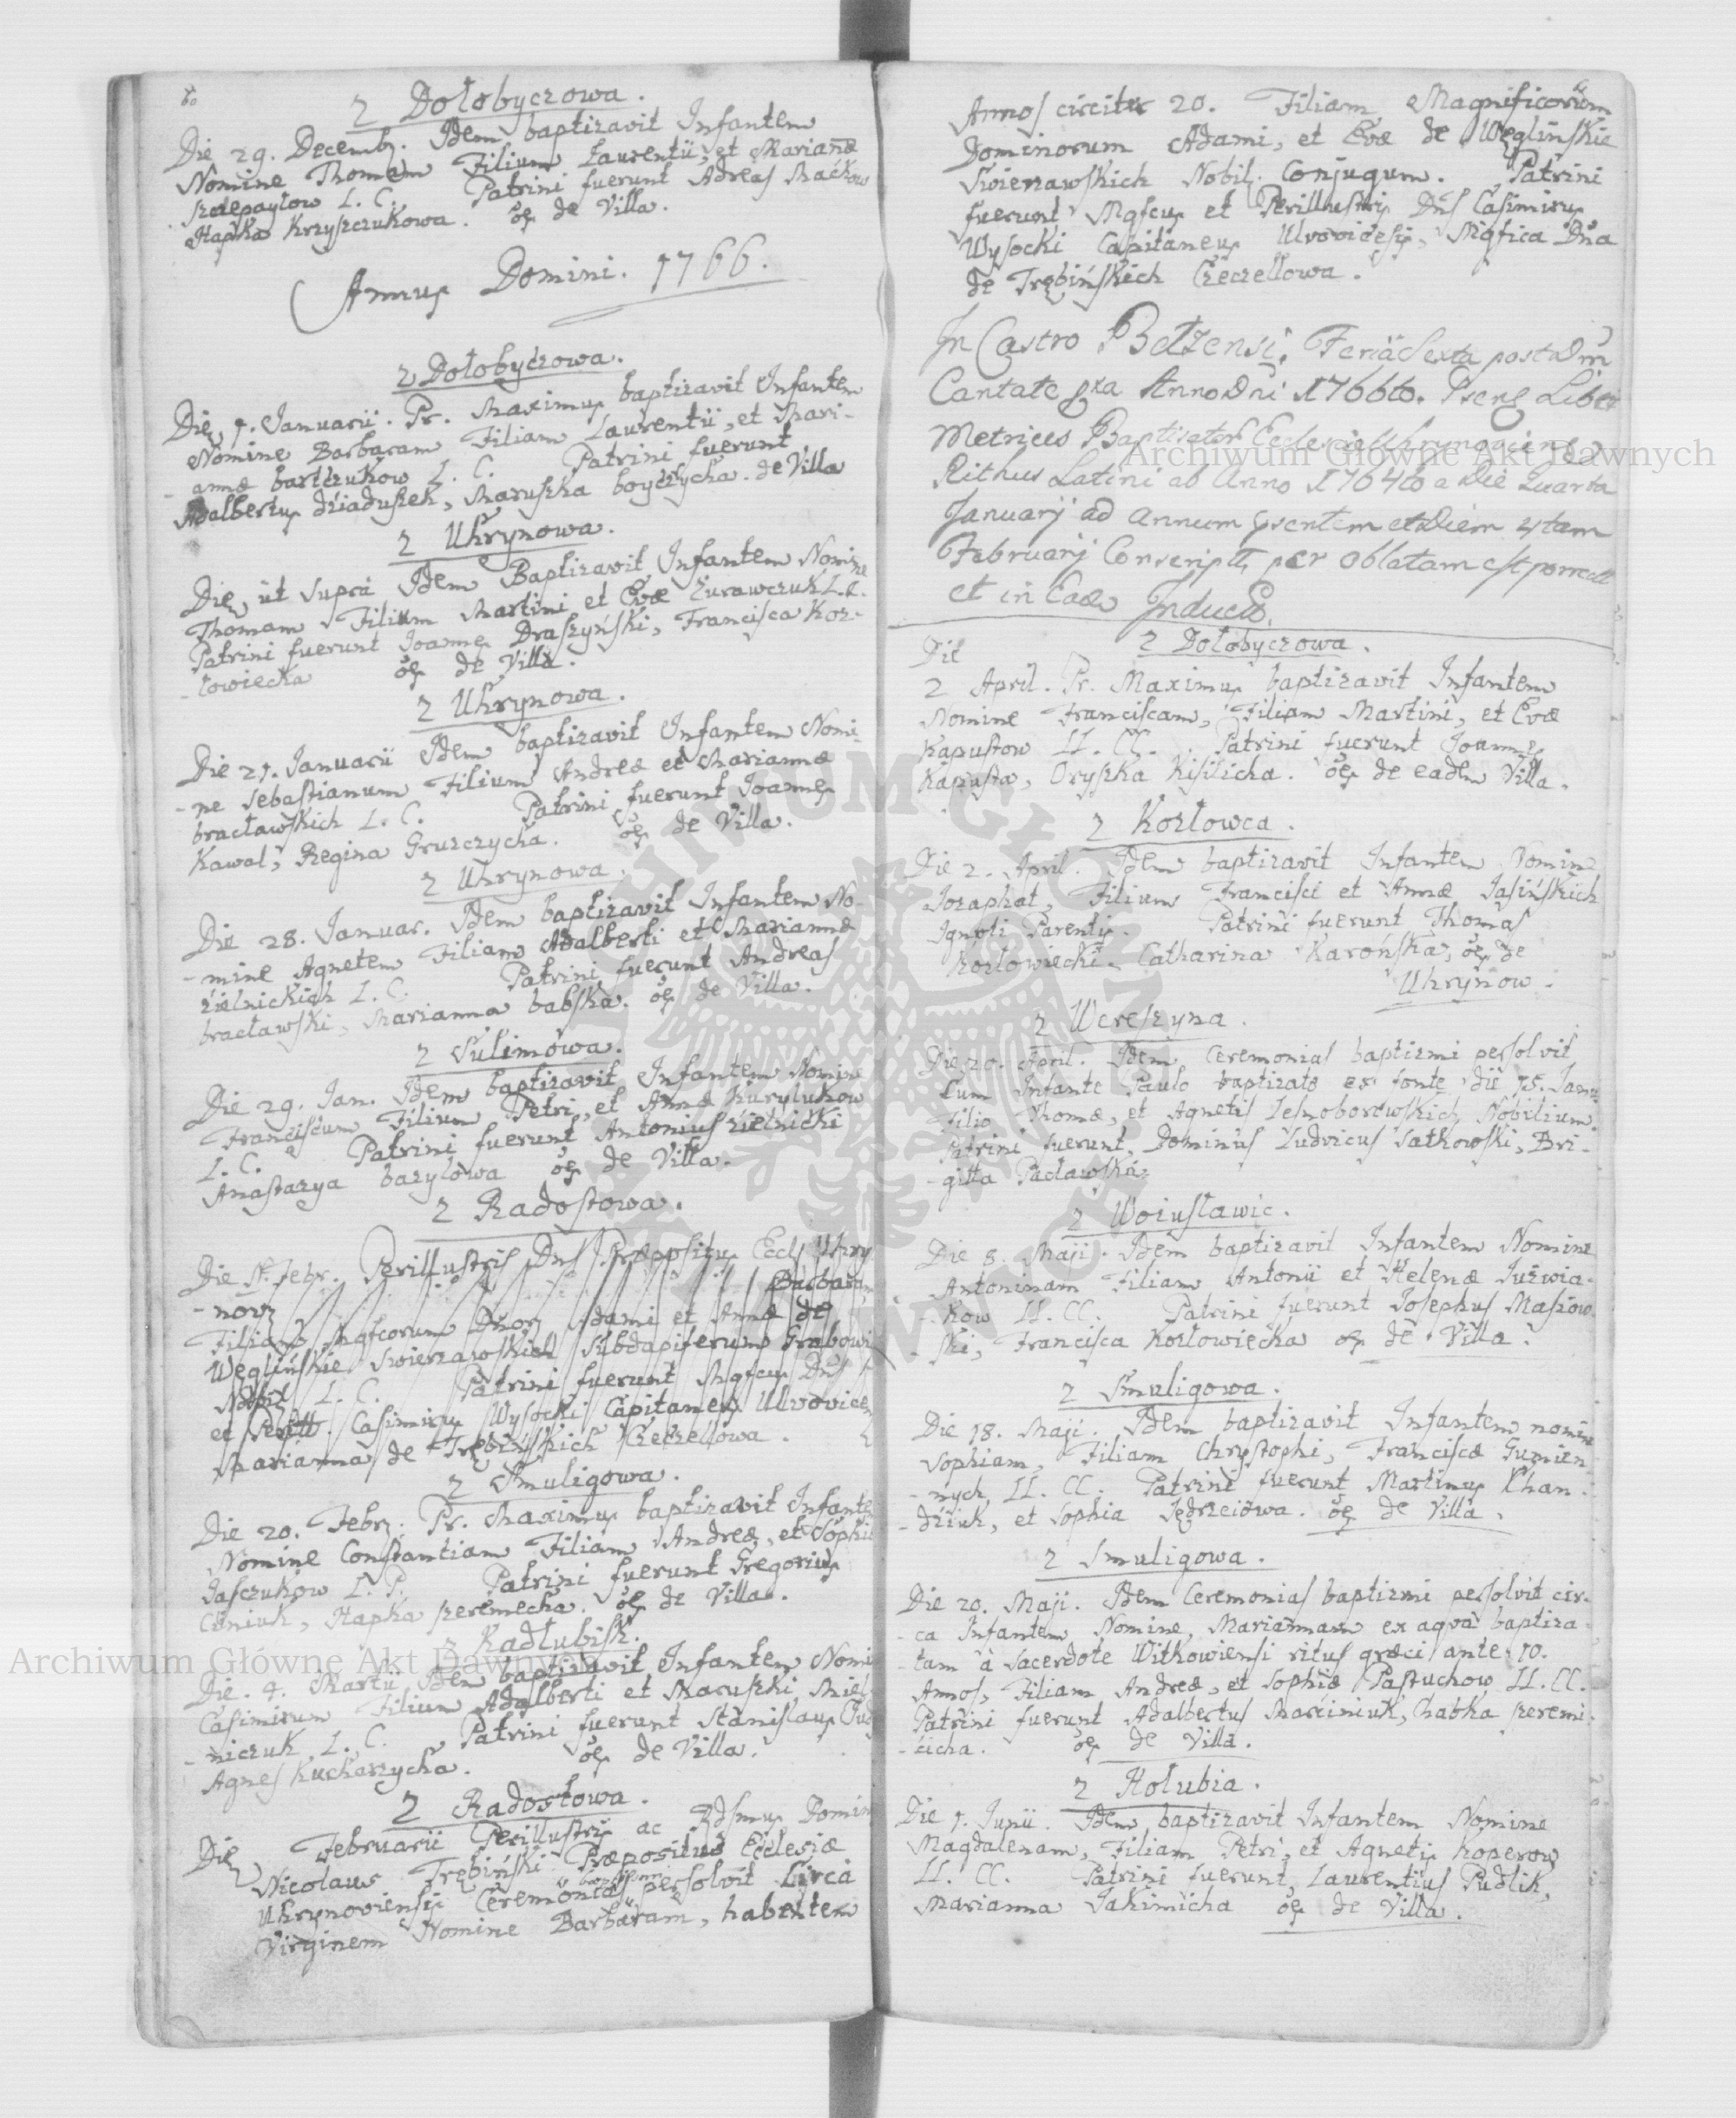 60
z Dołobyczowa.
Die 29. Decembr. Idem baptizavit Infantem
Nomine Thomam Filium Laurentii, et Mariañæ
Szczepaytow L. C. Patrini fuerunt Adreas Maćkow
Hapka Krzyszczukowa. oẽs de Villa.
Annus Domini. 1766.
z Dołobyczowa.
Die 1. Januarii. Pr. Maximus baptizavit Infantem
Nomine Barbaram Filiam Laurentii, et Mari-
-annæ bartczukow L. C. Patrini fuerunt
Adalbertus dziaduszek, Maruszka boyczycha. de Villa
z Uhrynowa.
Die ut supra Idem Baptizavit Infantem Nomine
Thomam Filium Martini et Evæ Zurawczuk L. C.
Patrini fuerunt Joannes Draszyński, Francisca Koz-
-łowiecka oẽs de Villa.
z Uhrynowa.
Die 21. Januarii Idem baptizavit Infantem Nomi-
-ne Sebastianum Filium Andreæ et Mariannæ
bracławskich L. C. Patrini fuerunt Joannes
Kawal, Regina Gruszczycha. oẽs de Villa.
z Uhrynowa.
Die 28. Januar. Idem baptizavit Infantem No-
-mine Agnetem Filiam Adalberti et Mariannæ
zielnickich L. C. Patrini fuerunt Andreas
bracławski, Marianna babska. oẽs de Villa.
z Sulimowa.
Die 29. Jan. Idem baptizavit Infantem Nomine
Franciscum Filium Petri, et Annæ Kurylukow
L. C. Patrini fuerunt Antonius zielnicki
Anastazya barylowa oẽs de Villa.
z Radostowa.
Die Febr. Perillustris Dns Præpositus Eccls Uhry
-nov Barbaram
Filiam Mgfcorum Dnor Adami et Annæ de
Węglińskie Swierzawskich Subdapiferum Grabowi
Nobil L. C. Patrini fuerunt Mgfcus Dns
et Perill. Casimirus Wysocki Capitaneus Ulvovicen
Marianna de Trębińskich Czeczellowa.
z Smuligowa.
Die 20. Febr. Pr. Maximus baptizavit Infante
Nomine Constantiam Filiam Andreæ, et Sophi
Jasczukow L. P. Patrini fuerunt Gregorius
Hapka szeremecha. oẽs de Villa.
z Radłubisk.
Die. 4. Martii Idem baptizavit Infantem Nomi
Casimirum Filium Adalberti et Maruszki Miel
-niczuk L. C. Patrini fuerunt Stanislaus
Agnes Kucharzycha. oẽs de Villa.
z Radostowa.
Die Februarii Perillustris ac Rdsmus Domin
Nicolaus Trębiński Præpositus Ecclesiæ
Uhrynoviensis Ceremonias baptismi persolvit circa
Virginem Nomine Barbaram, habentem
Annos circiter 20. Filiam Magnificorum
Dominorum Adami, et Evæ de Węglińskie
Swierzawskich Nobil. Conjugum. Patrini
fuerunt Mgfcus et Perillustris Dns Casimirus
Wysocki Capitaneus Ulvovicesis, Mgfica Dña
de Trębińskich Czeczellowa.
In Castro Bełzensi. Feria Sexta post Dm
Cantate Anno Dni 1766to. Psens Liber
Metrices Baptisator Ecclesia Uhrynovien
Rithus Latini ab Anno 1764to a Die Quarta
Januarij ad annum psentem et Diem 4tam
Februarij Conscript per Oblatam est porrect
et in Induct.
z Dołobyczowa.
Die
2 April. Pr. Maximus baptizavit Infantem
Nomine Franciscam, Filiam Martini, et Evæ
Kapustow LL. CC. Patrini fuerunt Joannes
Kapusta, Oryszka Kisilicha. oẽs de eadem Villa.
z Kozłowca.
Die 2. April. Idem baptizavit Infantem Nomine
Jozaphat, Filium Francisci et Annæ Jasińskich
Ignoti Parentis. Patrini fuerunt Thomas
Kozłowiecki. Catharina Karońska, oẽs de
Uhrynow.
z Wereszyna.
Die 20. April. Idem Ceremonias baptizmi persolvit
Cum Infante Paulo baptizato ex fonte die 15. Janu
Filio Thomæ, et Agnetis Lesnoborowskich Nobilium.
Patrini fuerunt, Dominus Ludvicus Satkowski, Bri-
-gitta Pacławska.
z Woiusławic.
Die 8. Maji. Idem baptizavit Infantem Nomine
Antoninam Filiam Antonii et Helenæ Juzwia-
-kow LL. CC. Patrini fuerunt Josephus Masiow
-ski, Francisca Kozłowiecka oẽs de Villa.
z Smuligowa.
Die 18. Maji. Idem baptizavit Infantem nomine
Sophiam, Filiam Chrystophi, Franciscæ Gumien
-nych LL. CC. Patrini fuerunt Martinus Khan-
-dziuk, et Sophia Jędrzeiowa. oẽs de Villa.
z Smuligowa.
Die 20. Maji. Idem Ceremonias baptizmi persolvit cir-
-ca Infantem Nomine, Mariannam ex aqva baptiza-
-tam à Sacerdote Witkowiensi ritus græci ante 10.
Annos, Filiam Andreæ, et Sophiæ Pastuchow LL. CC.
Patrini fuerunt Adalbertus Marciniuk, Chabka szeremi-
-cicha. oẽs de Villa.
z Hołubia.
Die 1. Junii. Idem baptizavit Infantem Nomine
Magdalenam, Filiam Petri, et Agnetis Koperow
LL. CC. Patrini fuerunt, Laurentius Pudlik,
Marianna Jakimicha oẽs de Villa.
Archiwum Główne Akt Dawnych
Archiwum Główne Akt Dawnych